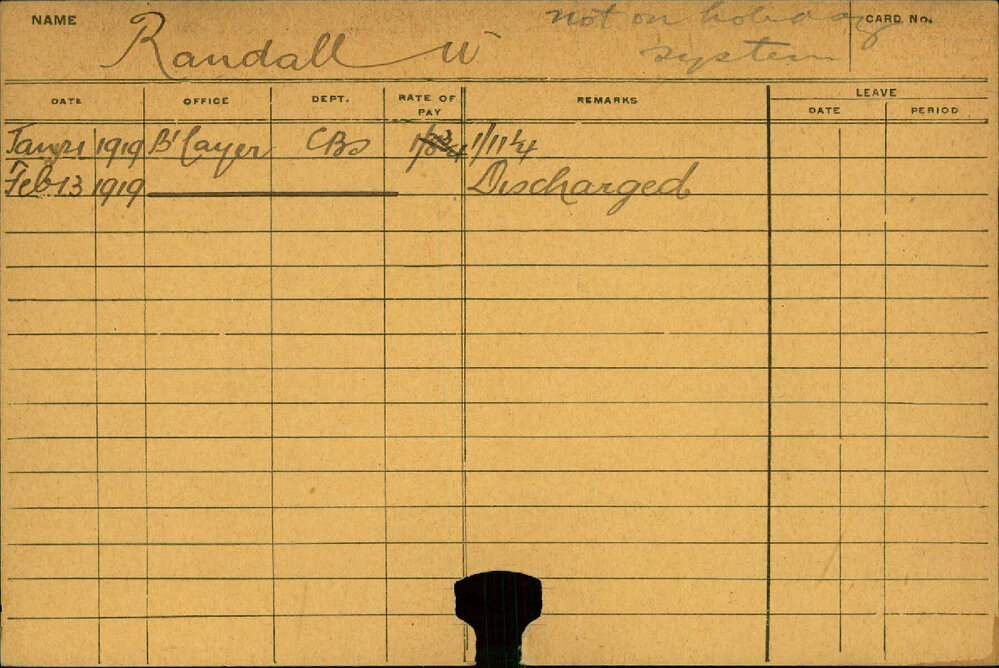 NAME Randall W not on holiday CARD No.
system
DATE OFFICE DEPT. RATE OF PAY REMARKS LEAVE
DATE PERIOD
Jan 21 1919 B'layer CBs 1/11¼
Feb 13 1919 Discharged